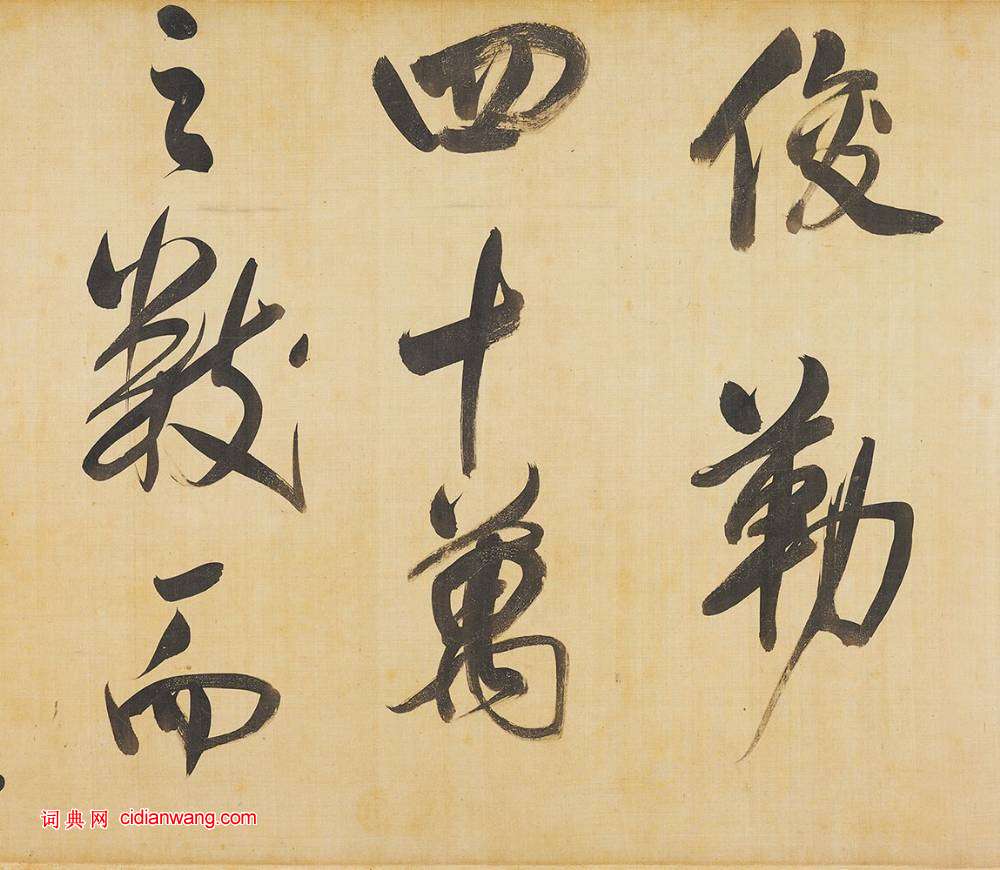 俊勒
四十萬
之數而
词典网 cidianwang.com